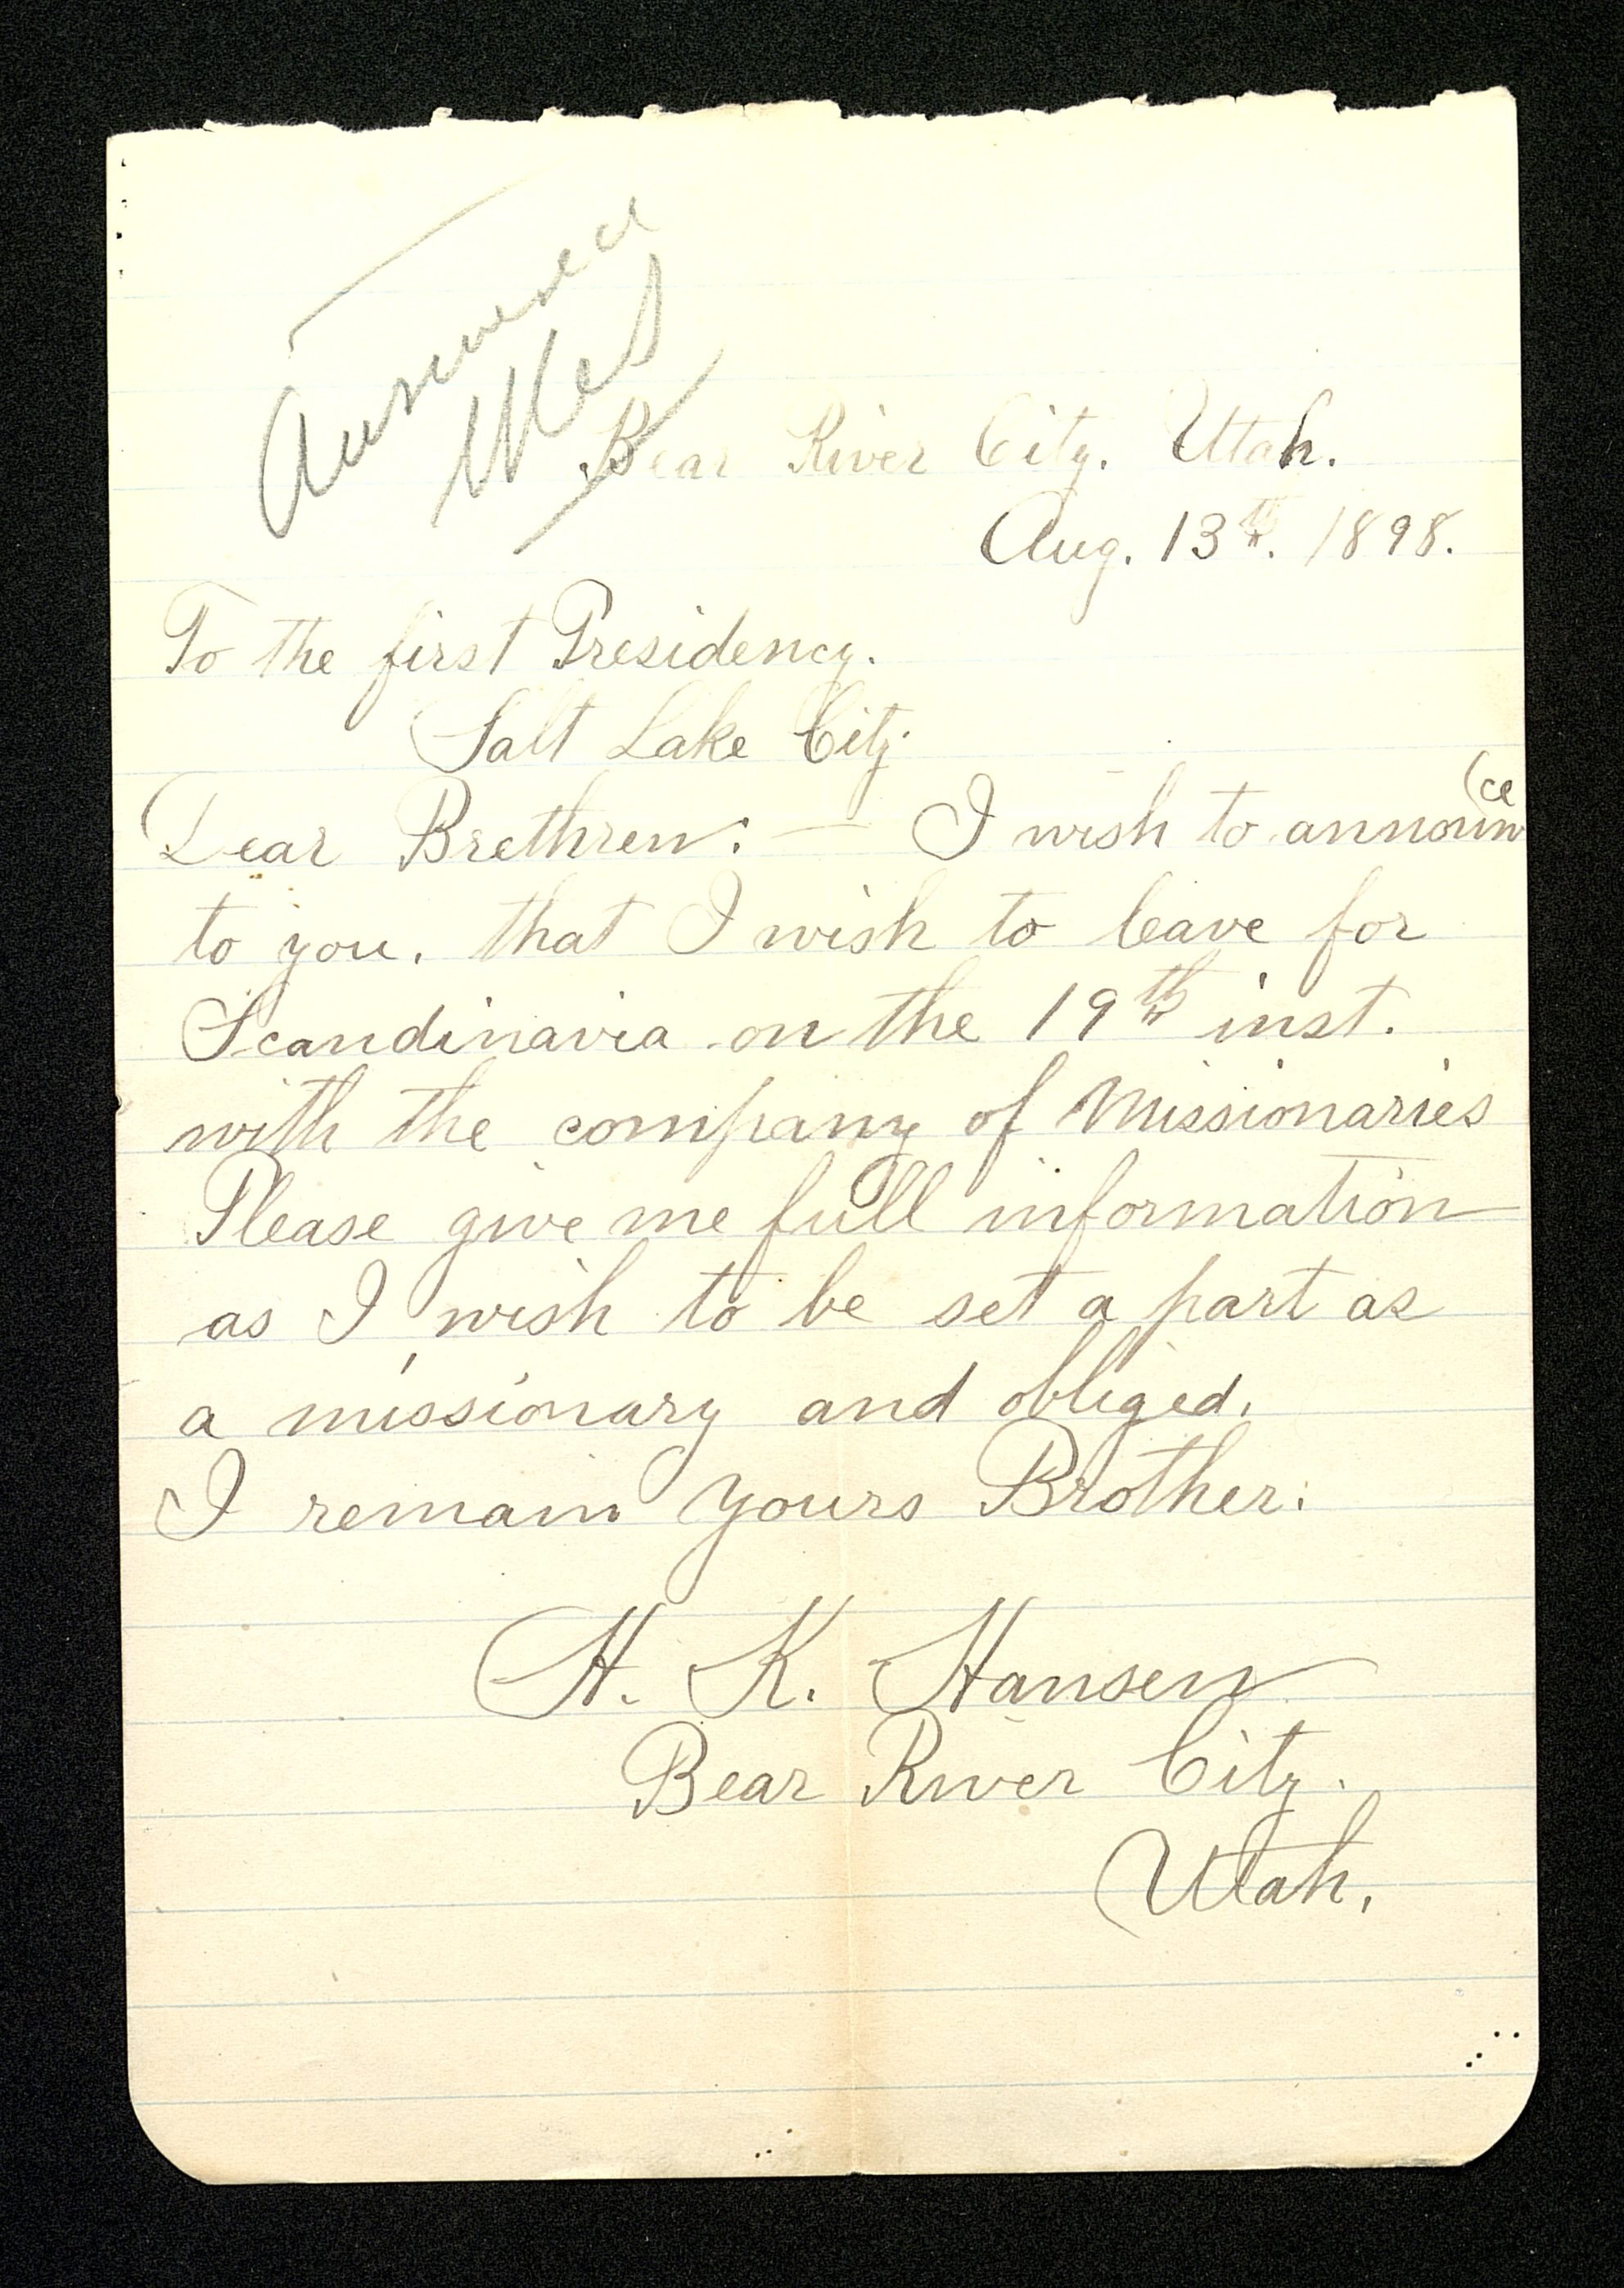 Answered
Bear River City. Utah.
Aug. 13th. 1898.
To the first Presidency.
Salt Lake City.
Dear Brethren: — I wish to announ(ce
to you, that I wish to leave for
Scandinavia on the 19th inst.
with the company of Missionaries
Please give me full information
as I wish to be set a part as
a missionary and obliged.
I remain yours Brother:
H. K. Hansen
Bear River City.
Utah.